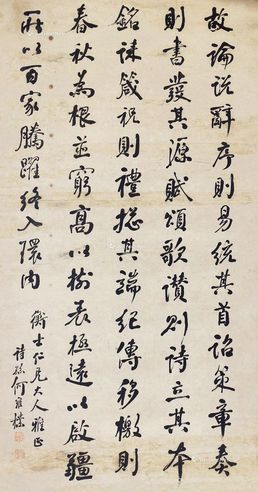 故論説辭序則易統其首詔策章奏
則書發其源賦頌歌讚則詩立其本
銘誄箴祝則禮摠其端紀傳移檄則
春秋為根並窮高以樹表極遠以啟疆
所以百家騰躍終入環内
衡士仁兄大人雅正
詩孫何維樸